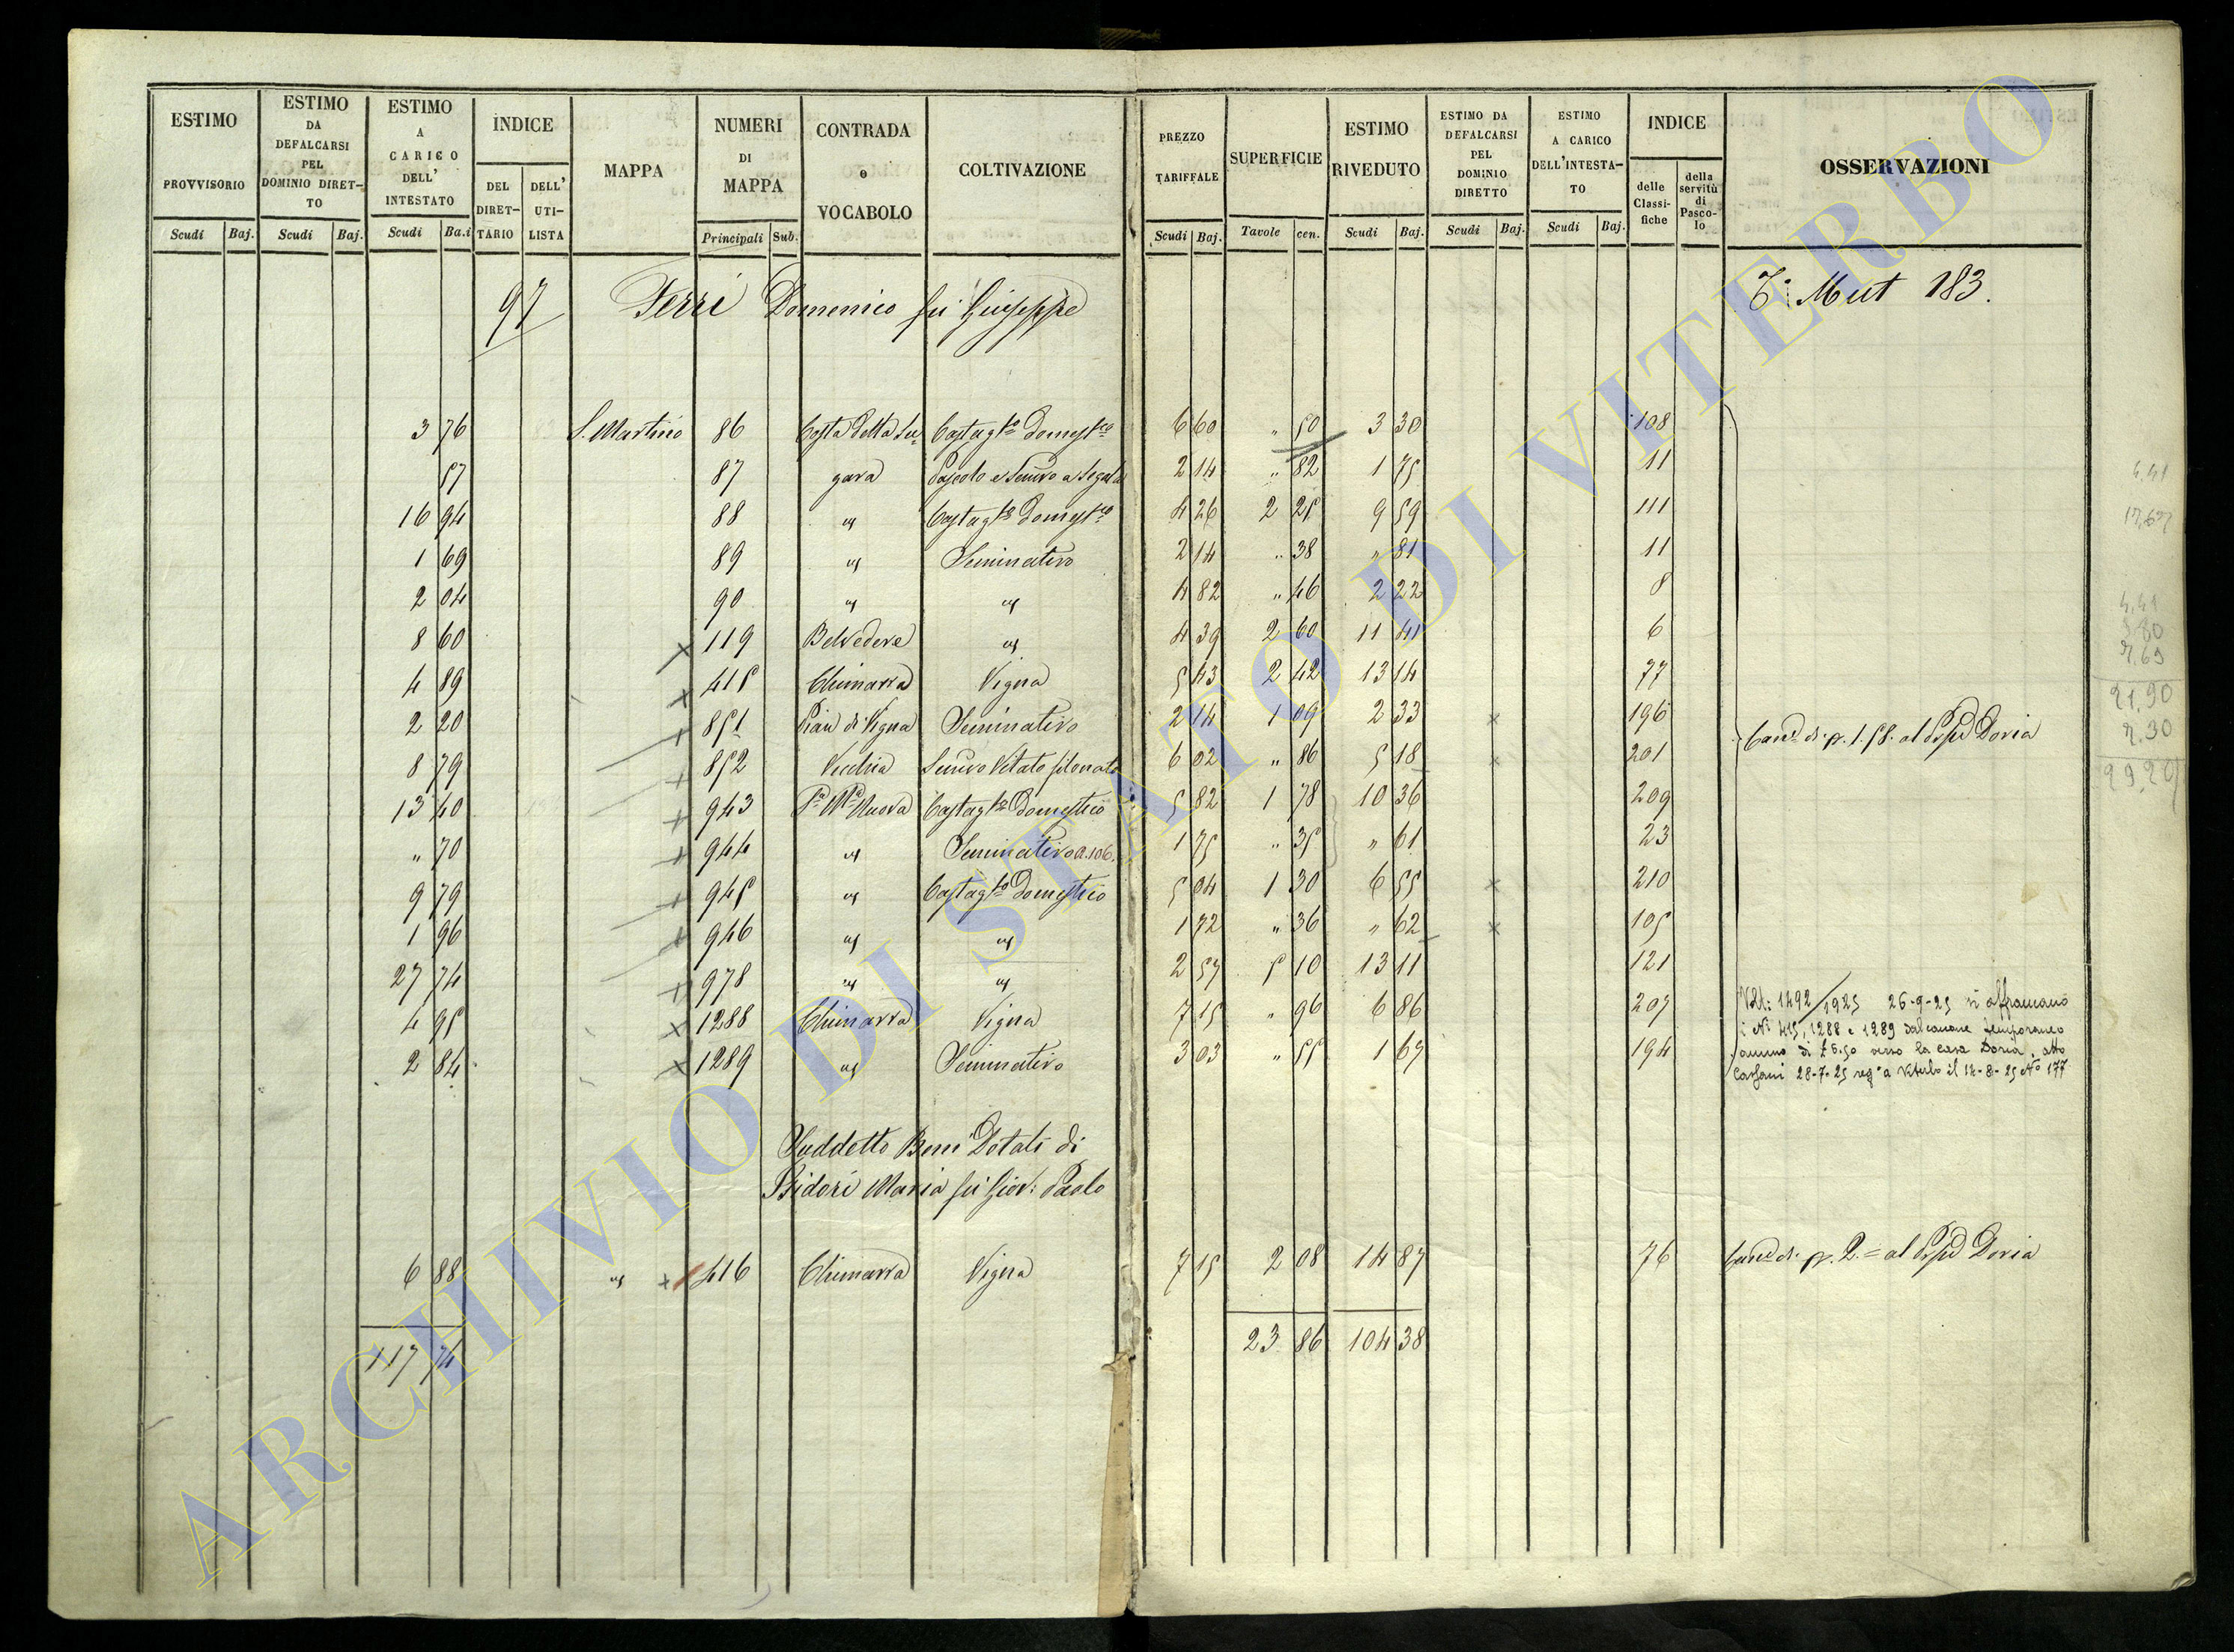 ESTIMO PROVVISORIO Scudi Baj.
ESTIMO DA DEFALCARSI PEL DOMINIO DIRETTO Scudi Baj.
ESTIMO A CARICO DELL' INTESTATO Scudi Ba.i
INDICE DEL DIRETTARIO DELL' UTILISTA
MAPPA
NUMERI DI MAPPA Principali Sub.
CONTRADA o VOCABOLO
COLTIVAZIONE
PREZZO TARIFFALE Scudi Baj.
SUPERFICIE Tavole cen.
ESTIMO RIVEDUTO Scudi Baj.
ESTIMO DA DEFALCARSI PEL DOMINIO DIRETTO Scudi Baj.
ESTIMO A CARICO DELL'INTESTATO Scudi Baj.
INDICE delle Classifiche della servitù di Pascolo
OSSERVAZIONI
97 Ferri Domenico fu Giuseppe
T. Mut 183.
3 76 S. Martino 86 Costa della Lu Castagto Domestco 6 60 " 50 3 30 108
57 87 gara Pascolo e Semivo a Segala 2 14 " 82 1 75 11
16 94 88 " Castagto Domestco 4 26 2 25 9 59 111
1 69 89 " Seminativo 2 14 " 38 " 81 11
2 04 90 " " 4 82 " 46 2 22 8
8 60 x 119 Belvedere " 4 39 2 60 11 41 6
4 89 x 415 Chimarra Vigna 5 43 2 42 13 14 77
2 20 x 851 Pian di Vigna Seminativo 2 14 1 09 2 33 x 196
Canne di p. 1.58. al Doria
8 79 x 852 Vecchia Semivo Vitato filonato 6 02 " 86 5 18 x 201
13 40 x 943 Nuova Castagto Domestico 5 82 1 78 10 36 209
" 70 x 944 " Seminativo a. 106. 1 75 " 35 " 61 23
9 79 x 945 " Castagto Domestico 5 04 1 30 6 55 x 210
1 96 x 946 " " 1 72 " 36 " 62 x 105
27 74 x 978 " " 2 57 5 10 13 11 121
4 95 x 1288 Chimarra Vigna 7 15 " 96 6 86 207
2 84 x 1289 " Seminativo 3 03 " 55 1 67 194
Volt: 1492/1925 26-9-25 si affrancano
i Ni 415, 1288 e 1289 dal canone temporaneo
annuo di £ 6.50 verso la casa Doria, atto
28-7-25 reg° a Viterbo il 14-8-25 N° 177
Suddetto Beni Dotali di
Isidori Maria fu Giov: Paolo
6 88 " x 416 Chimarra Vigna 7 15 2 08 14 87 76 Canne di p. 2.= al Doria
117 74 23 86 104 38
4,41
17,67
4,41
9,80
7,69
21,90
7.30
29,20
ARCHIVIO DI STATO DI VITERBO